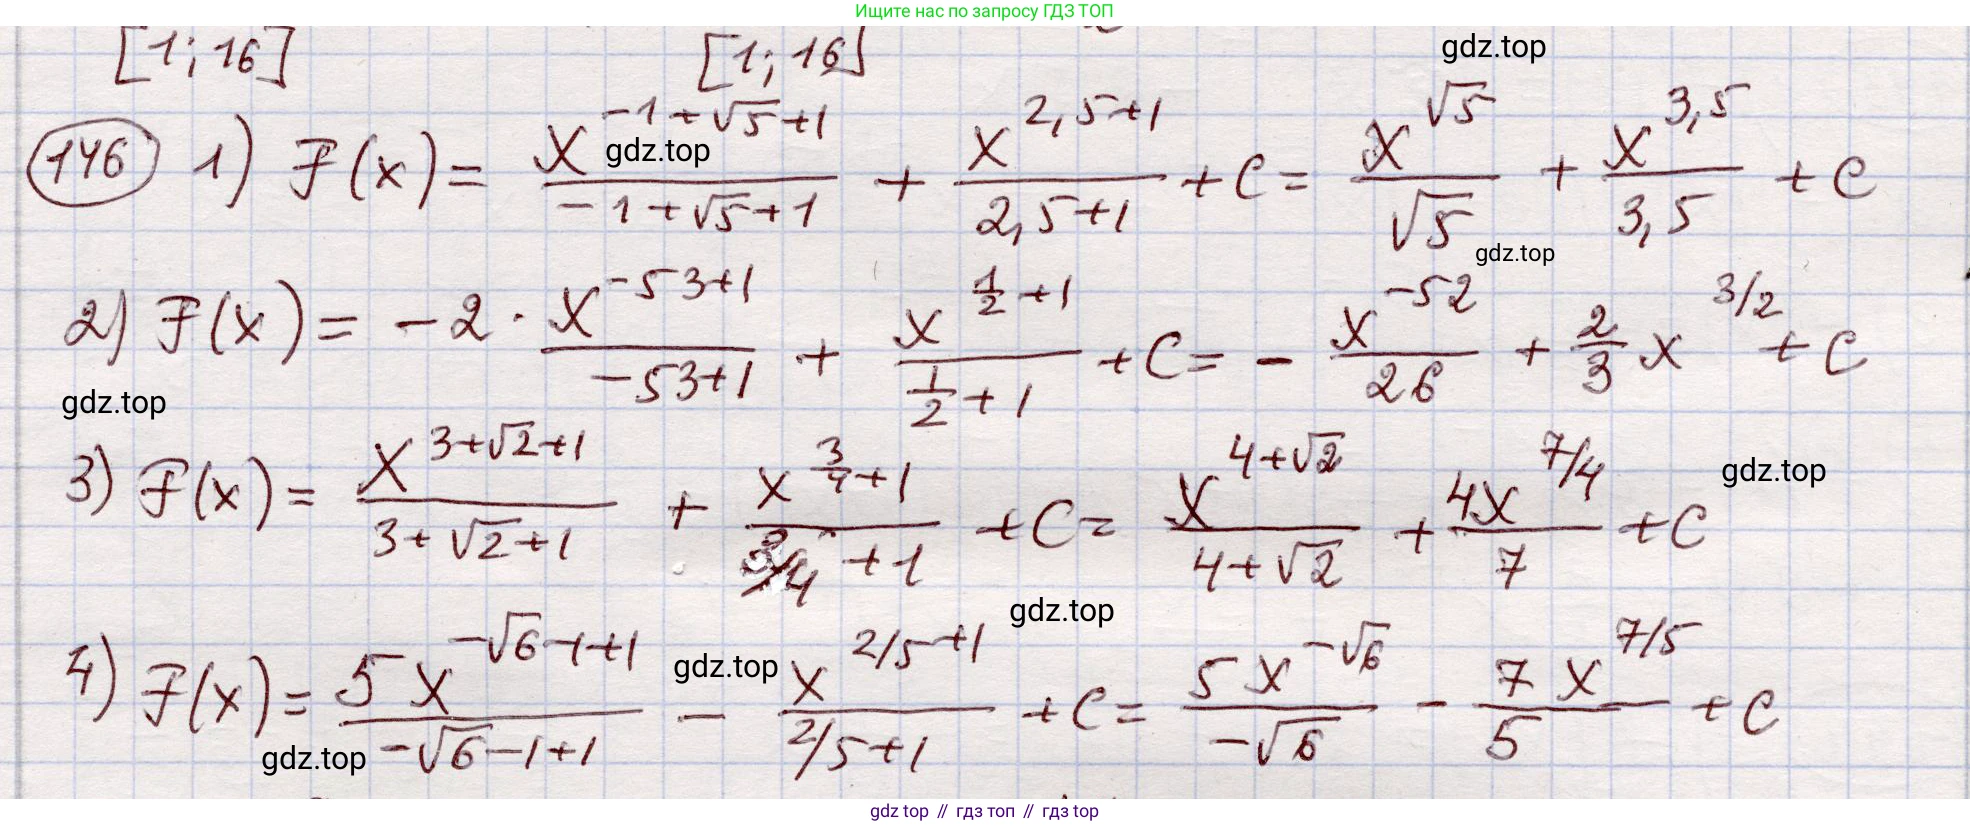 Ищите нас по запросу ГДЗ ТОП
[1; 16] [1; 16]
gdz.top
146 1) F(x) = x^(-1+√5+1)/(-1+√5+1) + x^(2,5+1)/(2,5+1) + C = x^(√5)/√5 + x^(3,5)/3,5 + C
gdz.top
gdz.top
2) F(x) = -2 · x^(-53+1)/(-53+1) + x^(1/2+1)/(1/2+1) + C = - x^(-52)/26 + 2/3 x^(3/2) + C
gdz.top
3) F(x) = x^(3+√2+1)/(3+√2+1) + x^(3/4+1)/(3/4+1) + C = x^(4+√2)/(4+√2) + 4x^(7/4)/7 + C
gdz.top
gdz.top
4) F(x) = 5x^(-√6-1+1)/(-√6-1+1) - x^(2/5+1)/(2/5+1) + C = 5x^(-√6)/(-√6) - 7x^(7/5)/5 + C
gdz.top
gdz.top
gdz top // гдз топ // гдз top